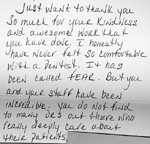 Just want to thank you
so much for your kindness
and awesome work that
you have done. I honestly
have never felt so comfortable
with a dentist. It has
been called FEAR. But you
and your staff have been
incredible. You do not find
to many DRS out there who
really deeply care about
their patients